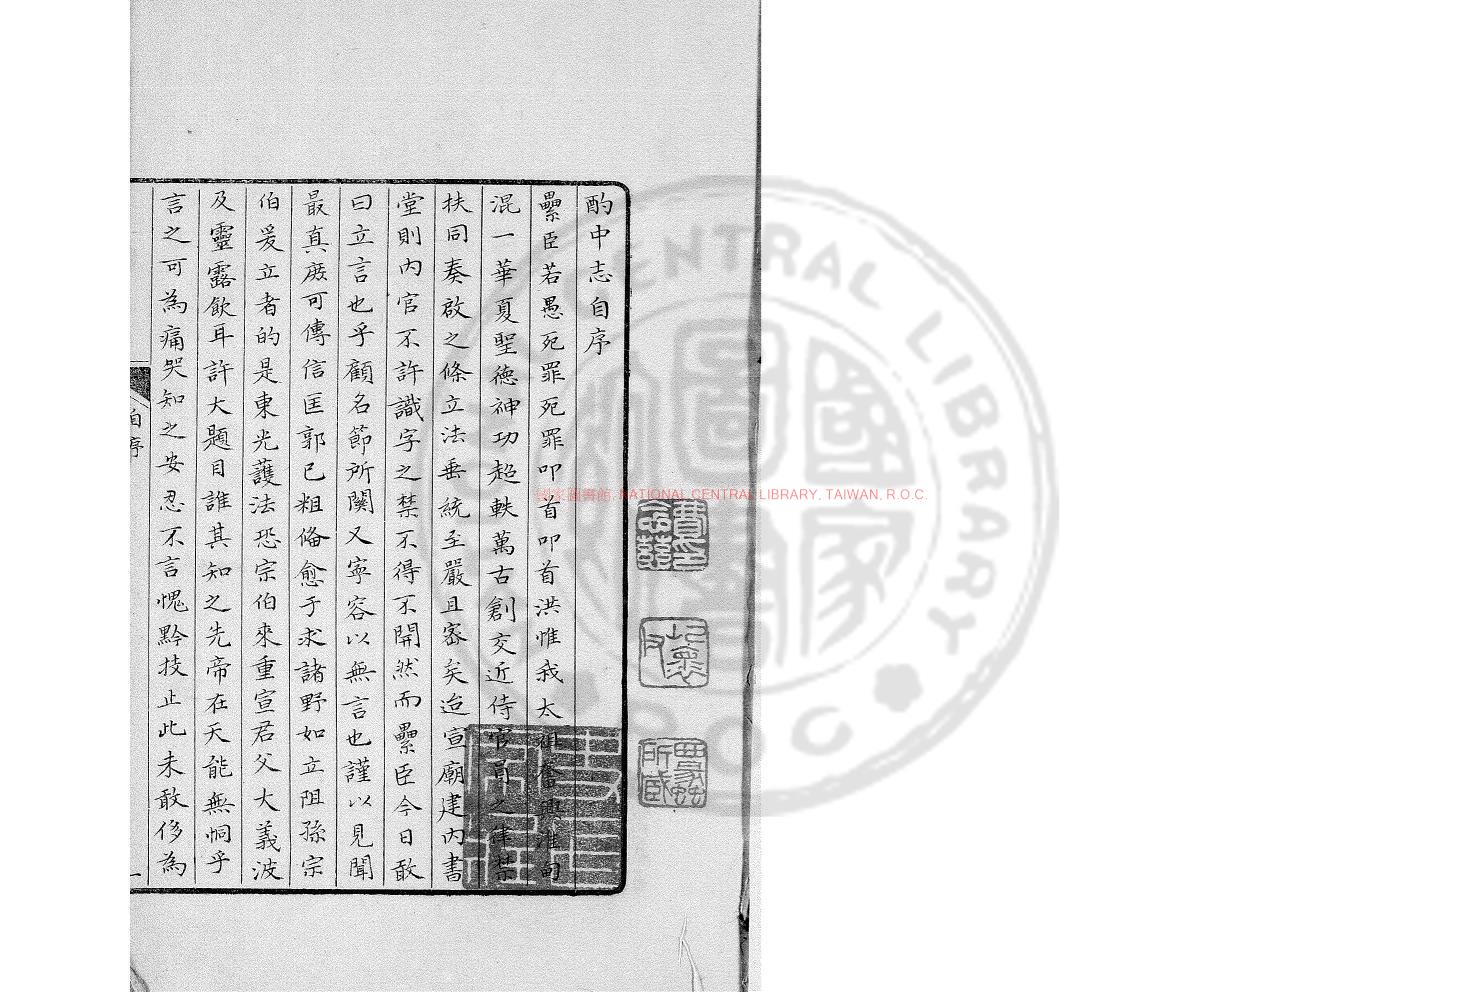 酌中志自序
纍臣若愚死罪死罪叩首叩首洪惟我太祖奮興淮甸
混一華夏聖德神功超軼萬古創交近侍官員之律禁
扶同奏啟之條立法垂統至嚴且密矣迨宣廟建內書
堂則內官不許識字之禁不得不開然而纍臣今日敢
曰立言也乎顧名節所關又寧容以無言也謹以見聞
最真庻可傳信匡郭已粗俻愈于求諸野如立阻孫宗
伯爰立者的是東光護法恐宗伯來重宣君父大義波
及靈露飲耳許大題目誰其知之先帝在天能無恫乎
言之可為痛哭知之安忍不言愧黔技止此未敢侈為
自序
一
國家圖書館, NATIONAL CENTRAL LIBRARY, TAIWAN, R.O.C.
CENTRAL LIBRARY
ROC
國家圖書